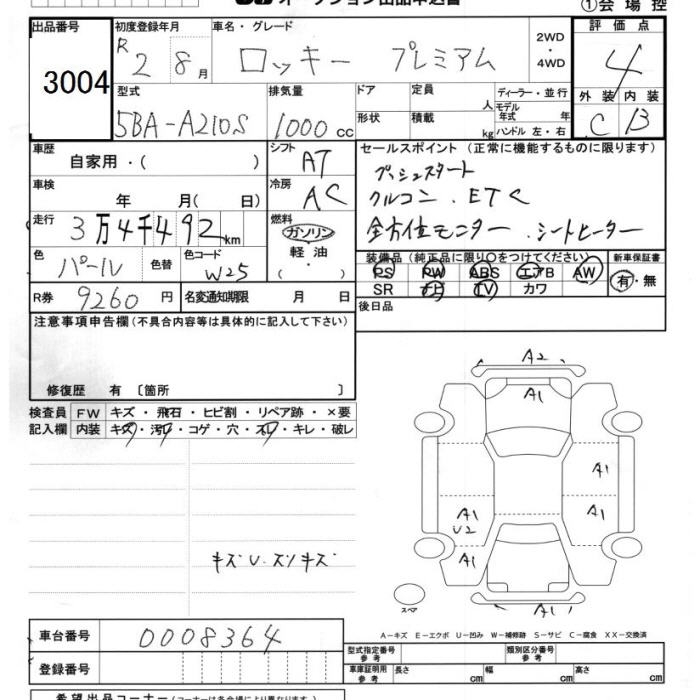 オークション出品申込書
①会場控
出品番号
3004
初度登録年月
R 2 8月
車名・グレード
ロッキー プレミアム
2WD
・
4WD
評価点
4
外装 内装
C B
型式
5BA-A210S
排気量
1000 cc
ドア
定員
人
形状
積載
kg
ディーラー・並行
モデル
年式 年
ハンドル 左・右
車歴
自家用・( )
シフト
AT
車検
年 月( 日)
冷房
AC
走行
3万4千492km
燃料
ガソリン
軽油
( )
色
パール
色替
色コード
W25
R券 9260 円
名変通知期限 月 日
セールスポイント (正常に機能するものに限ります)
プッシュスタート
クルコン. ETC
全方位モニター. シートヒーター
装備品 (純正品に限り○をつけてください)
PS PW ABS エアB AW
SR ナビ TV カワ
新車保証書
有・無
後日品
注意事項申告欄(不具合内容等は具体的に記入して下さい)
修復歴 有 〔箇所 〕
検査員 FW キズ・飛石・ヒビ割・リペア跡・×要
記入欄 内装 キズ・汚レ・コゲ・穴・スレ・キレ・破レ
キズU.スリキズ
A2
A1
A1
A1 A1
U2
A1 A1
A1
スペア
A-キズ E-エクボ U-凹み W-補修跡 S-サビ C-腐食 XX-交換済
車台番号 0008364
登録番号
型式指定番号
参考
類別区分番号
参考
車庫証明用
参考
長さ cm 幅 cm 高さ cm
希望出品コーナー(コーナーは各会場により異なります)